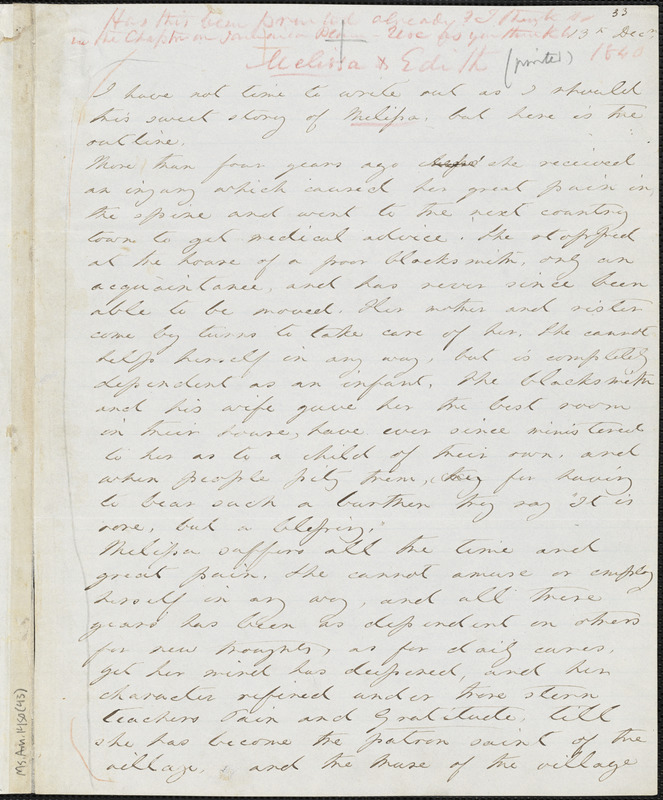 33
Has this been printed already? I think so
in the Chapter on Jamaica Plain - Use as you think best 13th Decr
Melissa & Edith (printed) 1840
I have not time to write out as I should
this sweet story of Melissa, but here is the
outline.
More than four years ago she received
an injury which caused her great pain in
the spine and went to the next country
town to get medical advice. She stopped
at the house of a poor blacksmith, only an
acquaintance, and has never since been
able to be moved. Her mother and sister
come by turns to take care of her. She cannot
help herself in any way, but is completely
dependent as an infant. The blacksmith
and his wife gave her the best room
in their house, have ever since ministered
to her as to a child of their own, and
when people pity them, for having
to bear such a burthen they say "It is
none, but a blessing."
Melissa suffers all the time and
great pain. She cannot amuse or employ
herself in any way, and all these
years has been as dependent on others
for new thoughts, as for daily cares,
yet her mind has deepened, and her
character refined under those stern
teachers Pain and Gratitude, till
she has become the patron saint of the
village, and the Muse of the village
Ms. Am. 1450 (43)